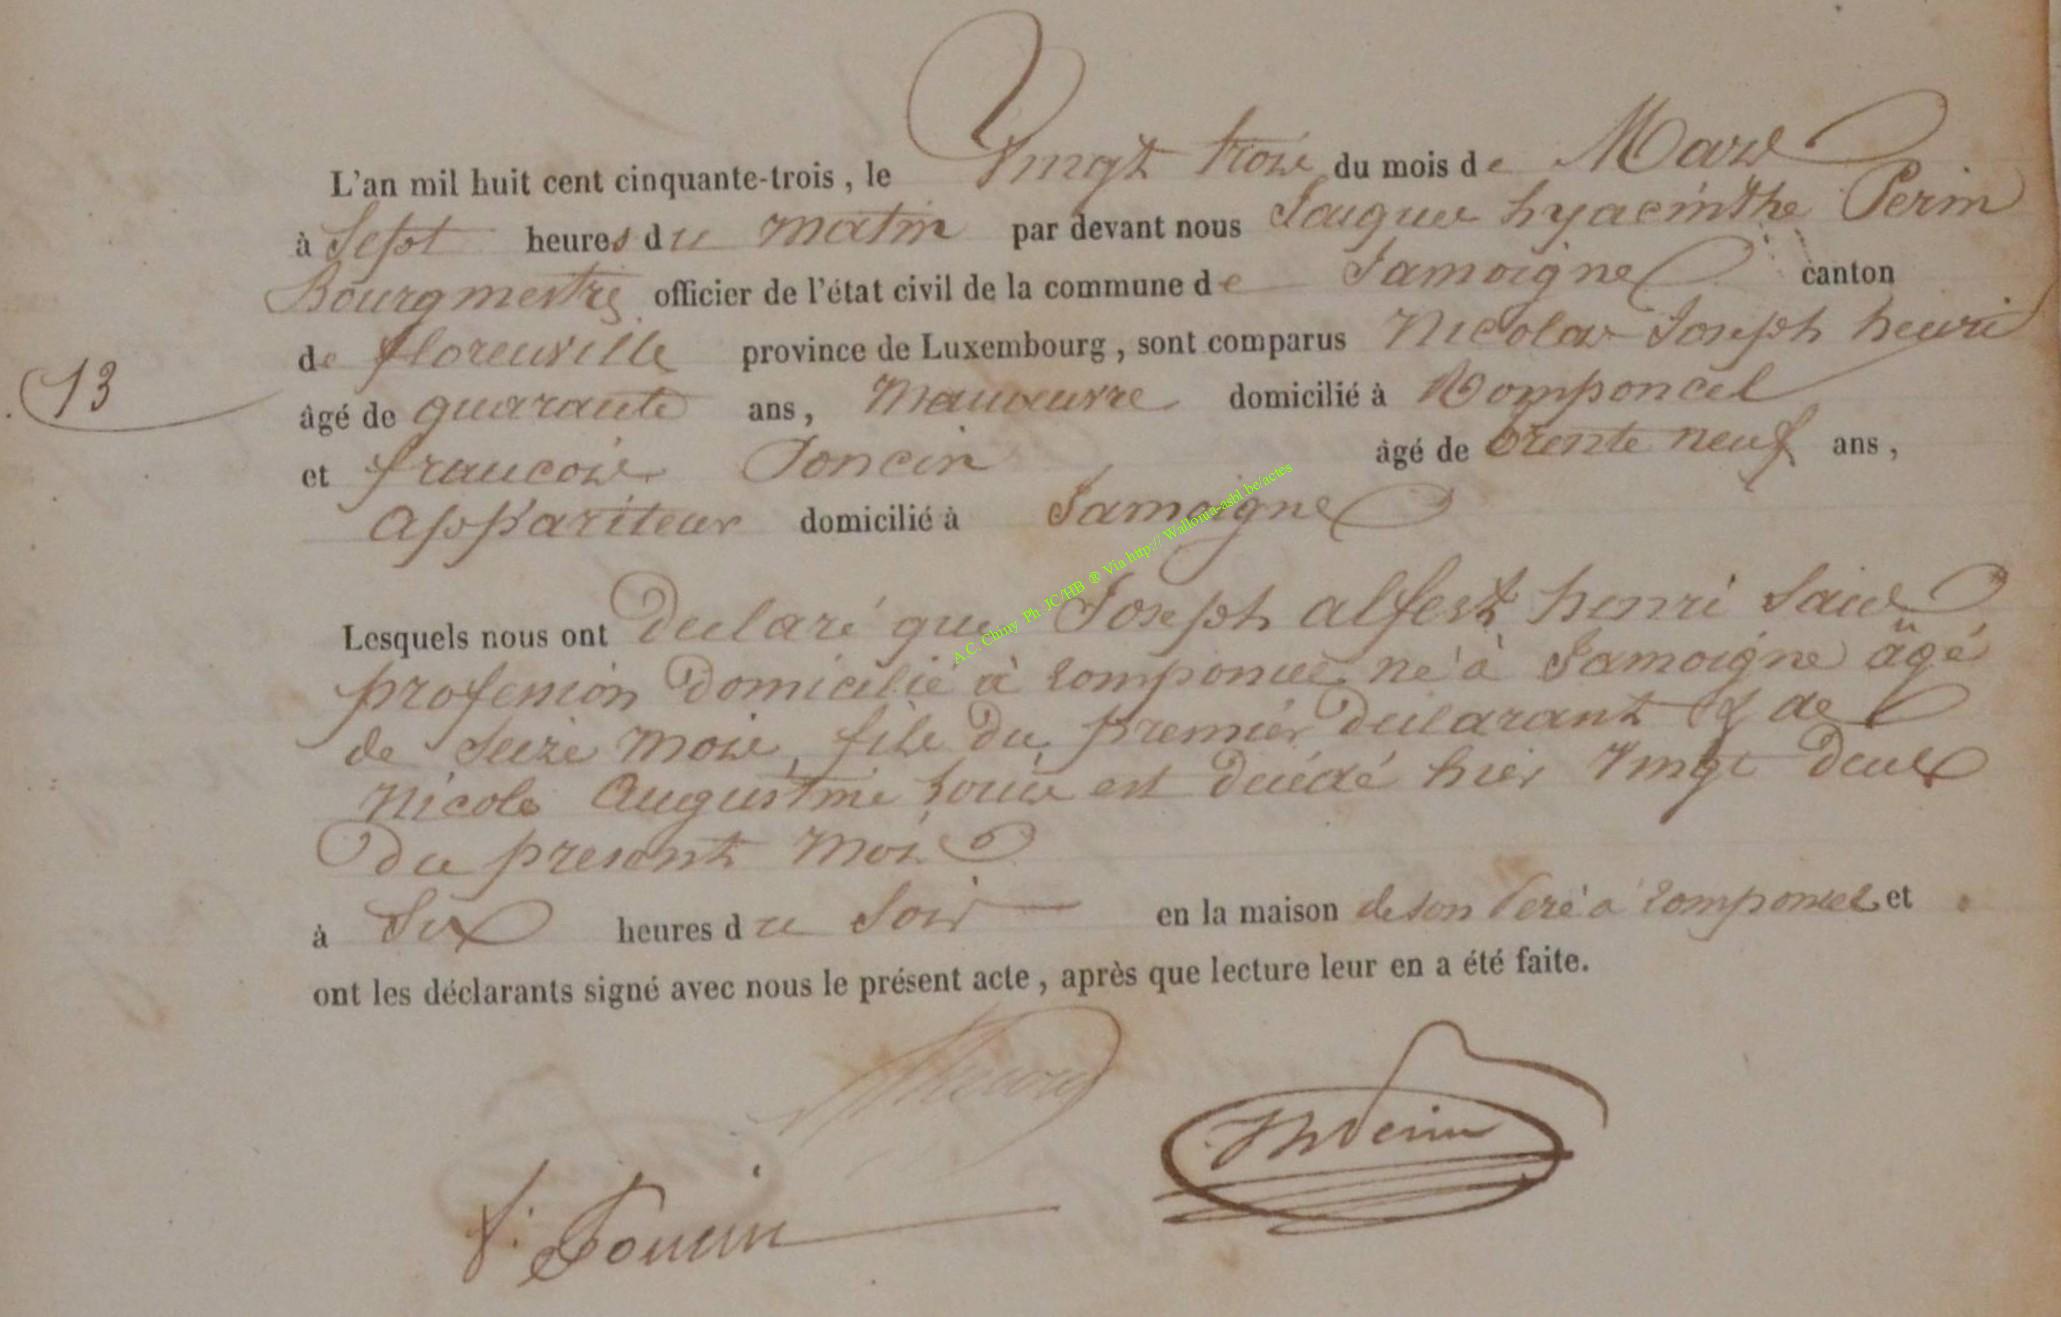 L'an mil huit cent cinquante-trois, le Vingt trois du mois de Mars
à Sept heures du matin par devant nous Jacques hyacinthe Perin
Bourgmestre officier de l'état civil de la commune de Jamoigne canton
de florenville province de Luxembourg, sont comparus Nicolas Joseph henri
13
âgé de quarante ans, Manoeuvre domicilié à Romponcel
et francois Poncin âgé de trente neuf ans,
Appariteur domicilié à Jamoigne
A.C. Chiny Ph JC/HB ® Via http://Wallonia-asbl.be/actes
Lesquels nous ont Declaré que Joseph henri Sans
profession Domicilié à romponcel né à Jamoigne âgé
de Seize mois, fils du premier Declarant & de
Nicole Augustine est décédé hier Vingt Deux
Du present mois
à Six heures du Soir en la maison de son Père à romponcel et
ont les déclarants signé avec nous le présent acte, après que lecture leur en a été faite.
JhPerin
f: Poncin